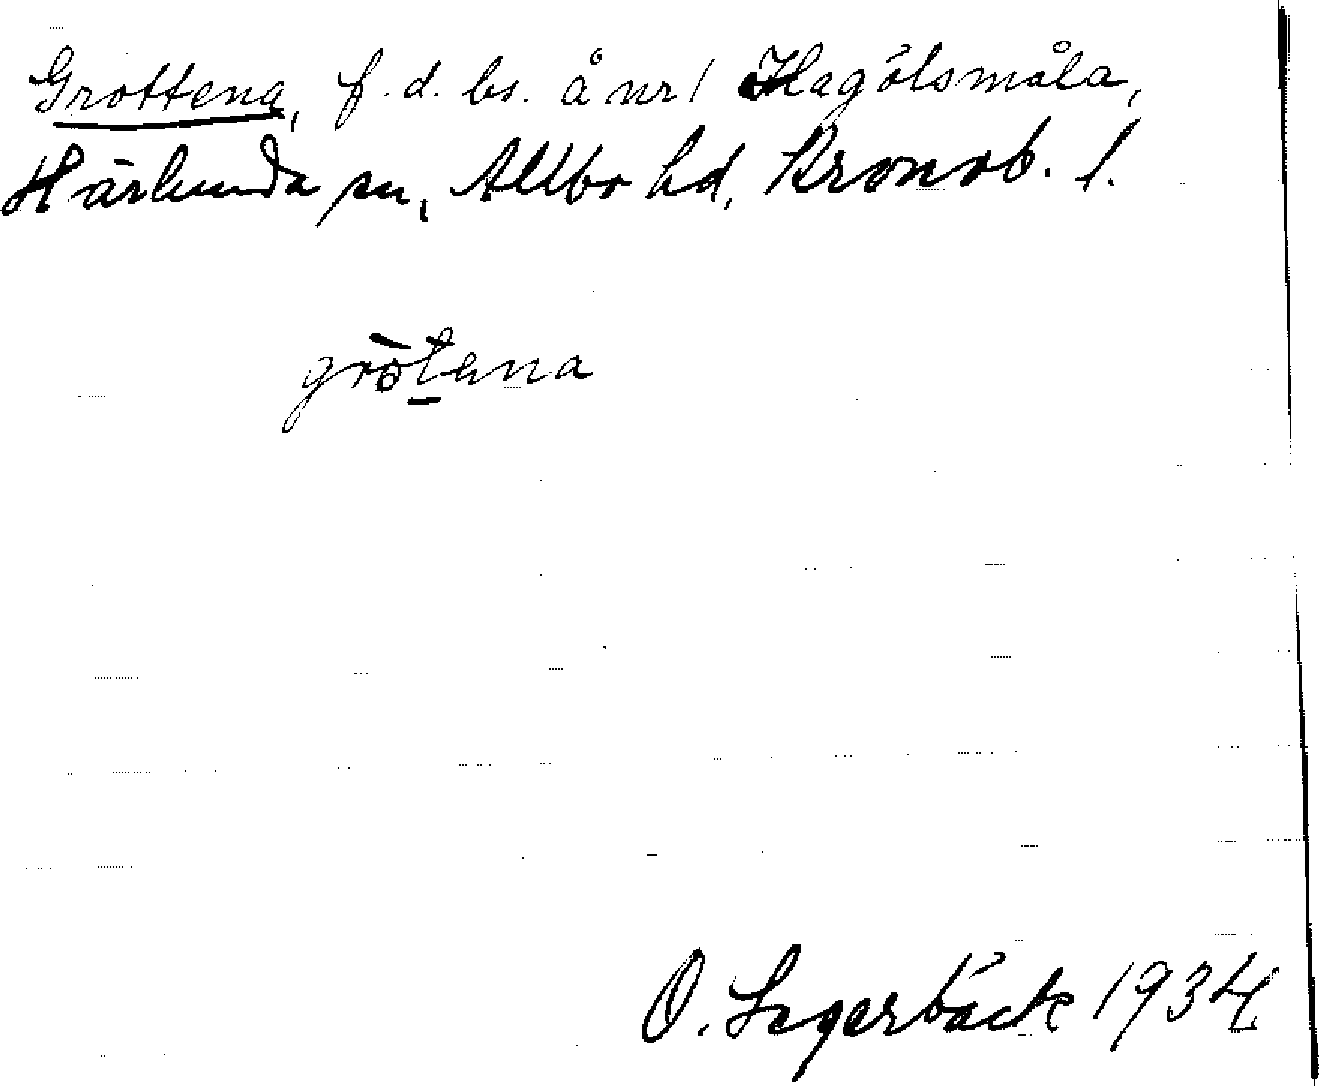 Grottena, f. d. bs. å nr 1 Hagölsmåla,
Härlunda sn, Allbo hd, Kronob. l.
gròt̠ena
O. Lagerbäck 1934